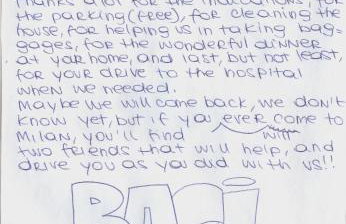 Thanks a lot for the indications, for
the parking (free), for cleaning the
house, for helping us in taking bag-
gages, for the wonderful dinner
at your home, and last, but not least,
for your drive to the hospital
when we needed.
Maybe we will come back, we don't
know yet, but if you ever come to
Milan, you'll find with
two friends that will help, and
drive you as you did with us!!
BACI